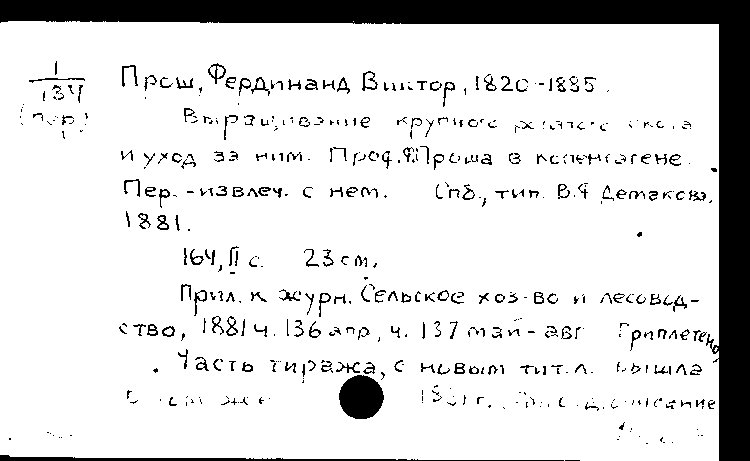 1
134
(пер)
Прош, Фердинанд Виктор, 1820-1885.
Выращивание крупного рогатого скота
и уход за ним. Проф. Ф. Проша в Копенгагене.
Пер.-извлеч. с нем. Спб., тип. В.Ф Демакова,
1881.
164, II с. 23 см.
Прил. к журн. Сельское хоз-во и лесовод-
ство, 1881 ч. 136 апр, ч. 137 май-авг Приплетено
Часть тиража, с новым тит. л. вышла
в том же 1881 г.